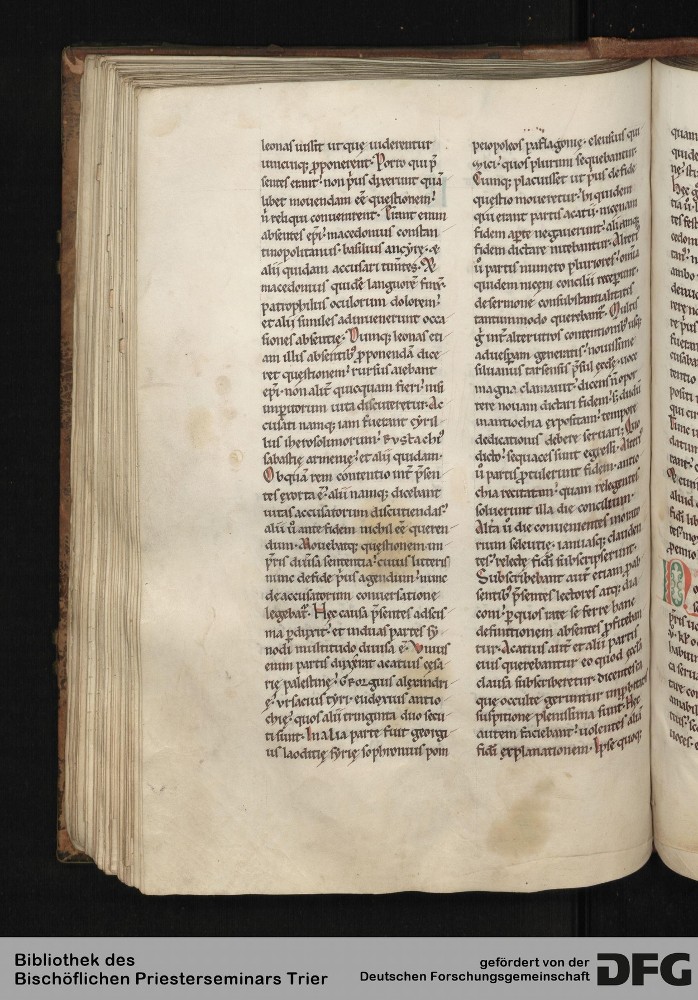 leonas iussit ut quę uiderentur
unicuiq; ꝓponerent. Porro qui p̄
sentes erant. non p̄us dixerunt quā
libet mouendam eē questionem.
n̄ reliqui conuenirent. Erant enim
absentes ep̄i. macedonius constan
tinopolitanus. basilius ancyrę. &
alii quidam accusari timētes. &
macedonius quidē languorē finx̄.
patrophilus oculorum dolorem.
et alii similes adinuenerunt occa
siones absentię. Cumq; leonas eti
am illis absentib; ꝓponendā dice
ret questionem. rursus aiebant
ep̄i. non alit̄ quicquam fieri. nisi
inpetitorum uita discuteretur. Ac
cusati namq; iam fuerant cyril
lus iherosolimorum. eustachi;
sabastię armenię. et alii quidam.
Ob quā rem contentio int̄ p̄sen
tes exorta ē. alii namq; dicebant
uitas accusatorum discutiendas.
alii ū ante fidem nichil eē queren
dum. Mouebatq; questionem im
p̄ris diūsa sententia. cuius litteris
nunc de fide p̄us agendum. nunc
de accusatorum conuersatione
legebat̄. Hęc causa p̄sentes ad scis
ma ꝑduxit. et in duas partes sẏ
nodi multitudo diuisa ē. Vnius
enim partis dux erat acatius cęsa
rię palestinę. georgius alexandri
ę. ursacius tyri. eudoxius antio
chię. quos alii tringinta duo secu
ti sunt. In alia parte fuit georgi
us laoditię syrię. sophronius pom
peiopoleos paflagonię. eleusius qui
zici. quos plurimi sequebantur.
Cumq; placuisset ut p̄us de fide
questio moueretur. hi quidem
qui erant partis acatii. nicenam
fidem apte negauerunt. aliamq;
fidem dictare nitebantur. Alteri
ū partis numero pluriores. omnia
quidem niceni concilii receperunt.
de sermone consubstantialitatis
tantummodo querebant̄. Multis
g̊ int̄ alterutros contentionib; usq;
ad uesꝑam generatis. nouissime
siluanus tarsensis p̄sul ęcclę. uoce
magna clamauit. dicens n̄ opor
tere nouam dictari fidem. s; dudū
in antiochia expositam. tempore
dedicationis debere seruari. Quo
dicto. sequaces sunt egressi. Alteri
ū partis ꝓtulerunt fidem. antio
chia recitatam. quam relegentes
soluerunt illa die concilium.
Alta ū die conuenientes in orato
rium seleutię. ianuasq; clauden
tes. relectę fidei subscripserunt.
Subscribebant aut̄ etiam ꝓ ab
sentib; p̄sentes lectores atq; dia
coni. ꝑ quos rate se ferre hanc
definitionem absentes ꝓfitebān
tur. Acatius aut̄ et alii partis
eius querebantur eo quod ęcclesia
clausa subscriberetur. dicentes ea
que occulte geruntur inprobitatis
suspitione plenissima sunt. Hęc
autem faciebant. uolentes aliā
fidei explanationem. Ipse quoq;
Bibliothek des
Bischöflichen Priesterseminars Trier
gefördert von der
Deutschen Forschungsgemeinschaft
DFG